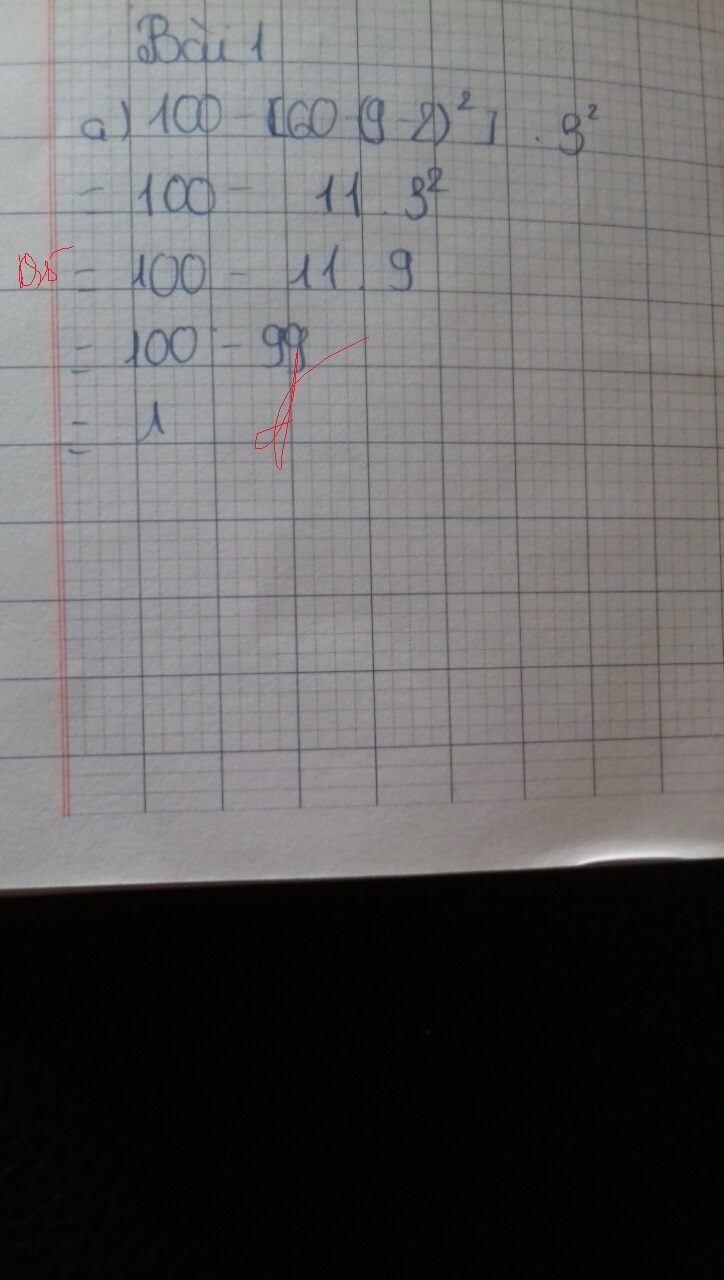 Bài 1
a) 100 - [60 - (9 - 2)²] . 3²
= 100 - 11 . 3²
0,5 = 100 - 11 . 9
= 100 - 99
= 1